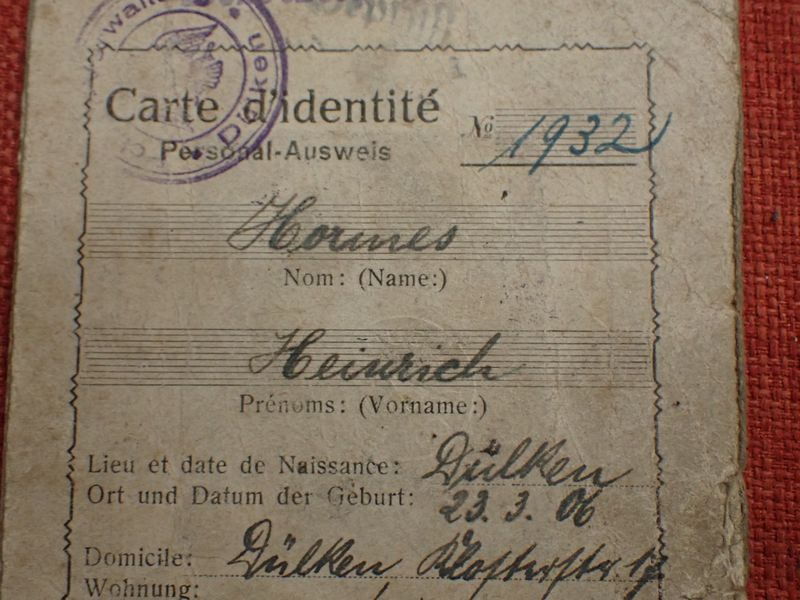 Dülken
Carte d'identité
№ 1932
Personal-Ausweis
Hormes
Nom: (Name:)
Heinrich
Prénoms: (Vorname:)
Lieu et date de Naissance: Dülken
Ort und Datum der Geburt: 23. 3. 06
Domicile: Dülken, Klosterstr. 17
Wohnung: